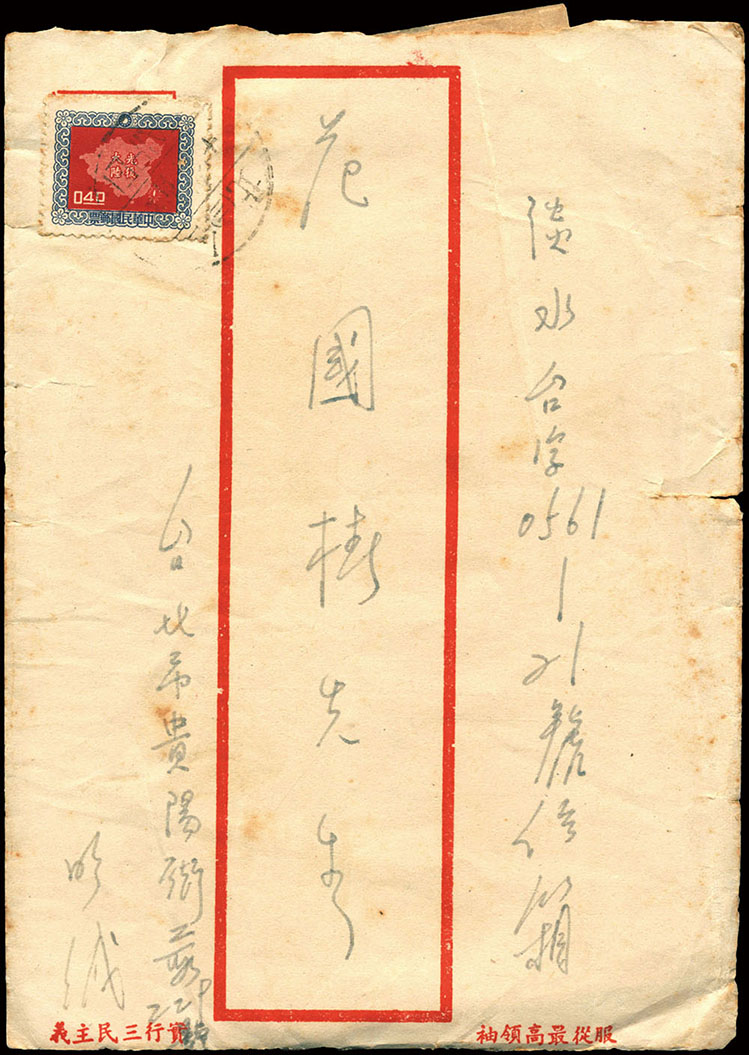 淡水台字0561-21號信箱
范國椿先生
台北市貴陽街二段
明緘
光復
大陸
040
中華民國郵票
服從最高領袖
實行三民主義